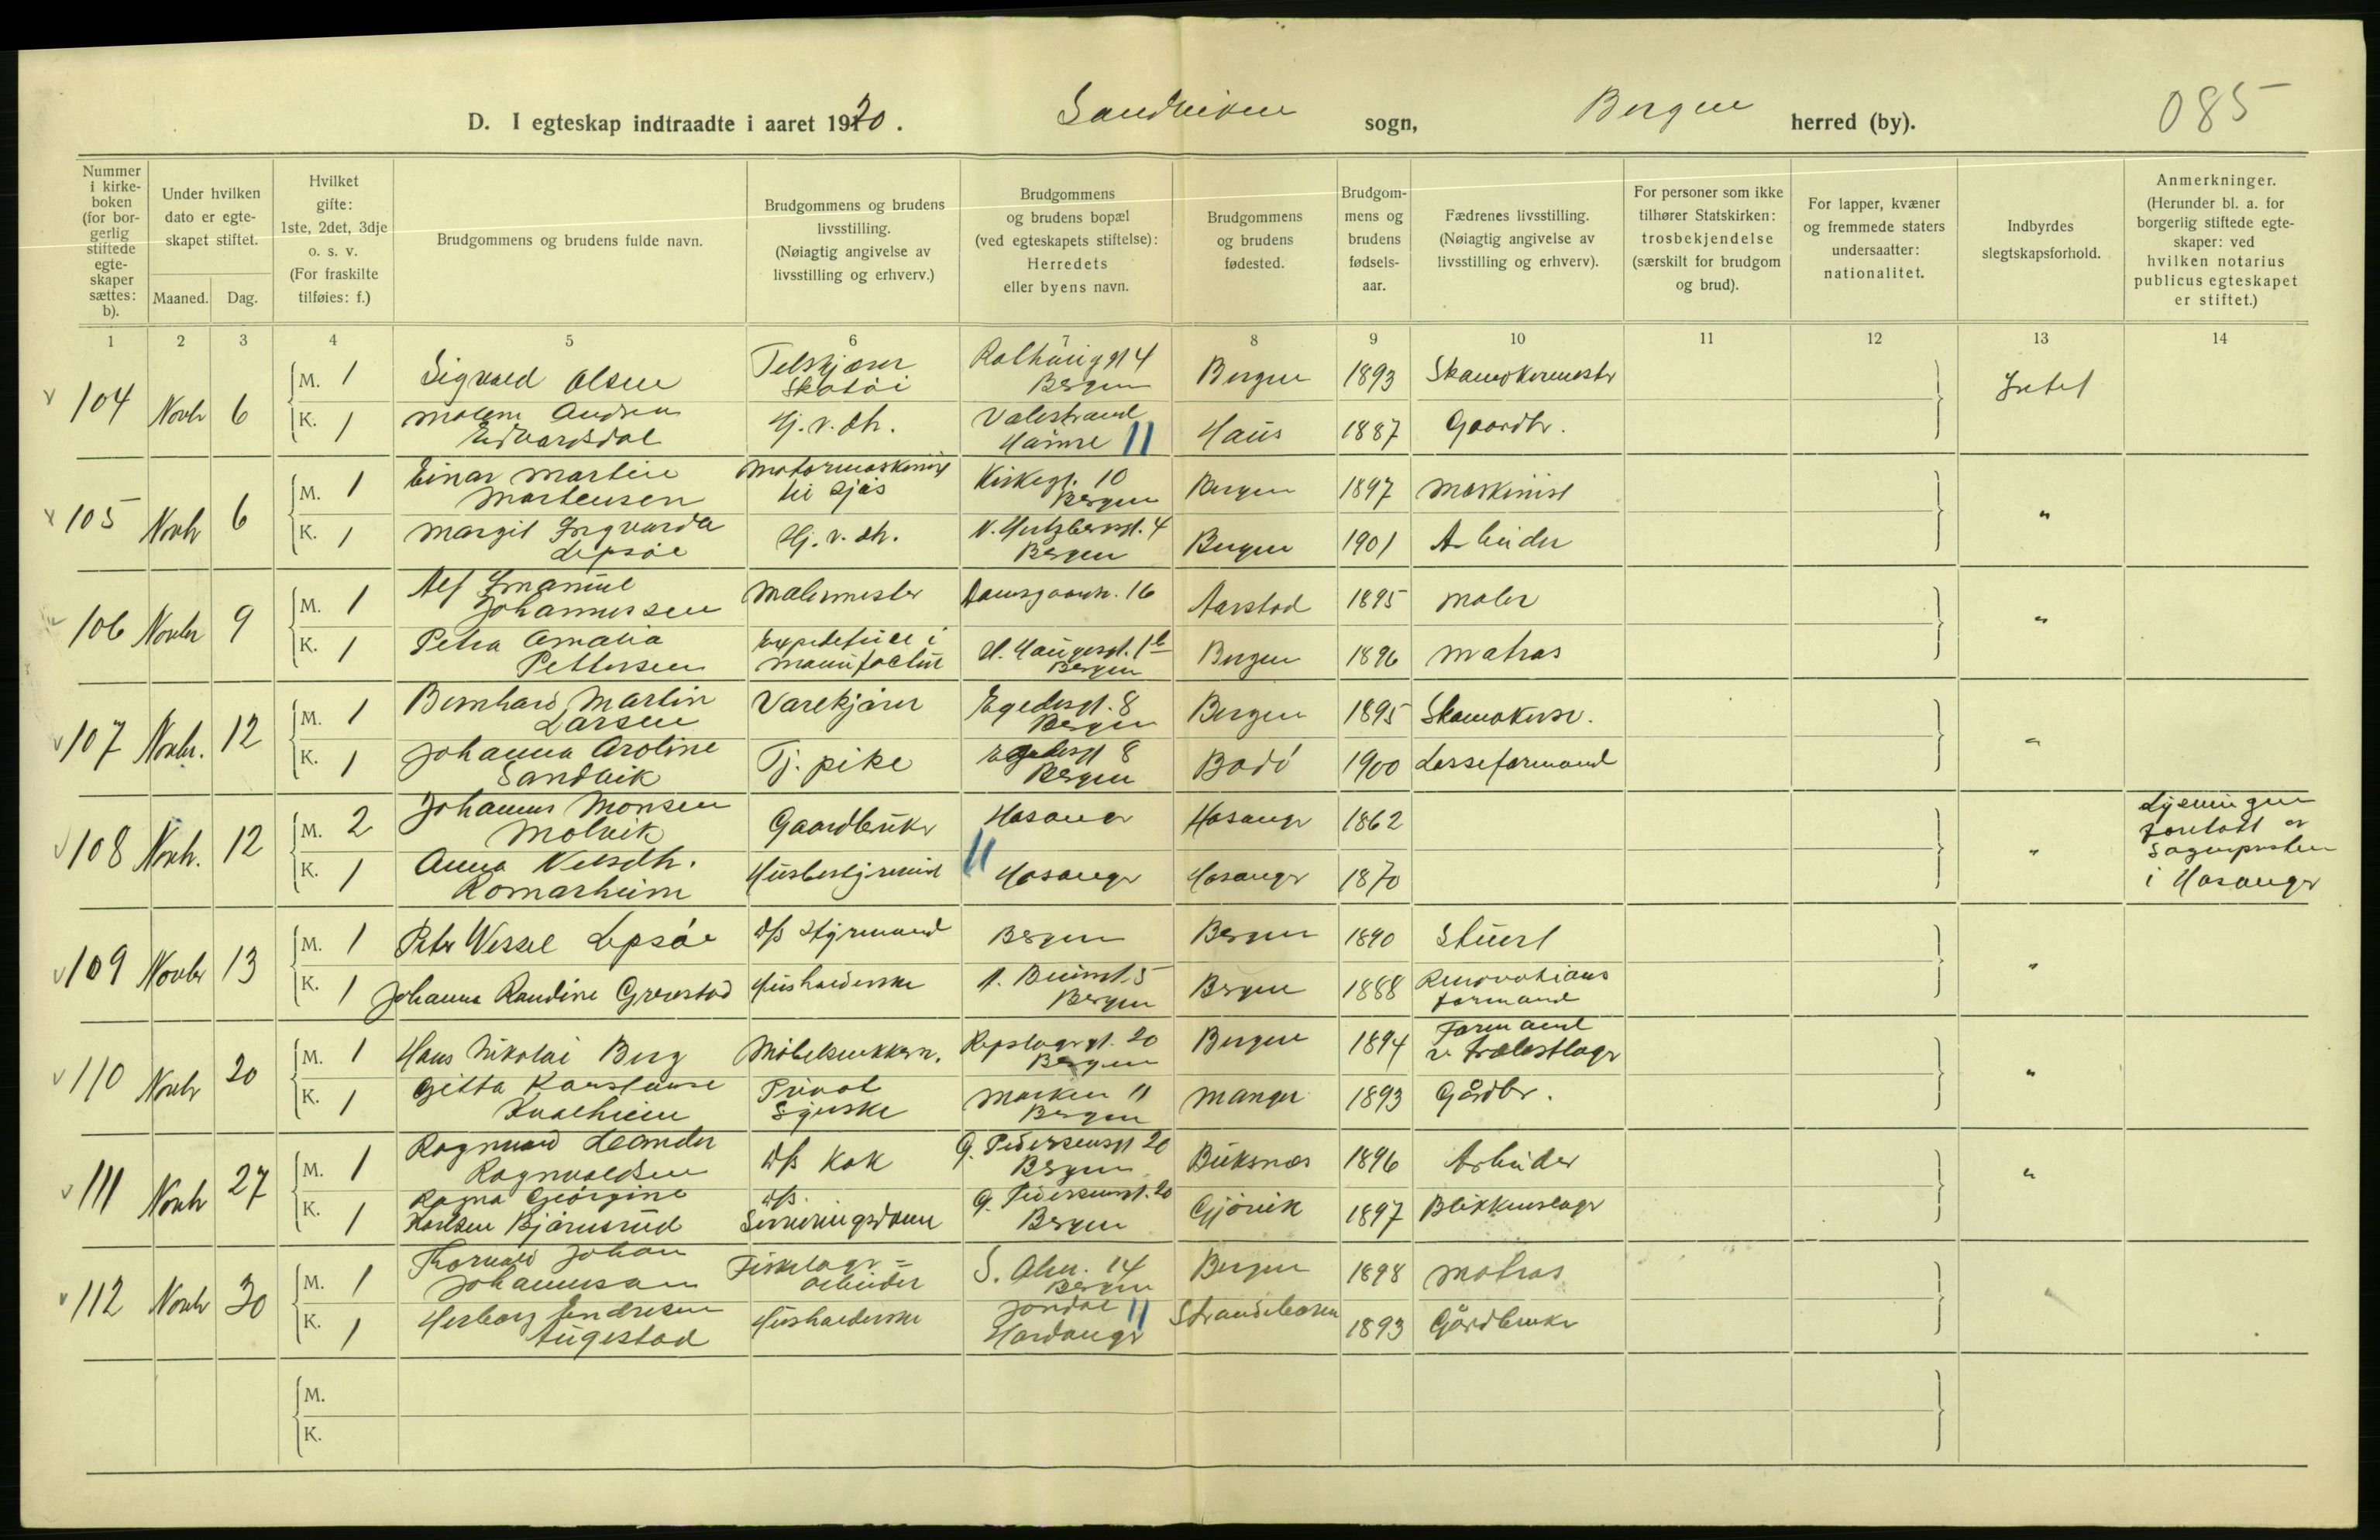 085
D. I egteskap indtraadte i aaret 1920. Sandviken sogn, Bergen herred (by).
Nummer i kirke-boken (for bor-gerlig stiftede egte-skaper sættes: b).
Under hvilken dato er egte-skapet stiftet.
Maaned. Dag.
Hvilket gifte: 1ste, 2det, 3dje o. s. v. (For fraskilte tilføies: f.)
Brudgommens og brudens fulde navn.
Brudgommens og brudens livsstilling. (Nøiagtig angivelse av livsstilling og erhverv.)
Brudgommens og brudens bopæl (ved egteskapets stiftelse): Herredets eller byens navn.
Brudgommens og brudens fødested.
Brudgom-mens og brudens fødsels-aar.
Fædrenes livsstilling. (Nøiagtig angivelse av livsstilling og erhverv).
For personer som ikke tilhører Statskirken: trosbekjendelse (særskilt for brudgom og brud).
For lapper, kvæner og fremmede staters undersaatter: nationalitet.
Indbyrdes slegtskapsforhold.
Anmerkninger. (Herunder bl. a. for borgerlig stiftede egte-skaper: ved hvilken notarius publicus egteskapet er stiftet.)
1 2 3 4 5 6 7 8 9 10 11 12 13 14
104 Novbr 6 M. 1 Sigvald Olsen Skotøi Bergen Bergen 1893 Skomakermester Intet
K. 1 Malene Andrea Edvardsdal Hj. v. dh. Valestrand Hamre 11 Haus 1887 Gaardbr.
105 Novbr 6 M. 1 Einar Martin Martensen Motormaskinist til sjøs Kirkegt. 10 Bergen Bergen 1897 Maskinist "
K. 1 Margit Ingvarda Lepsøe Hj. v. dh. N. Hertzbergsgt. 4 Bergen Bergen 1901 Arbeider
106 Novbr 9 M. 1 Alf Imanuel Johannessen Malermester Damsgaardv. 16 Aarstad 1895 Maler "
K. 1 Petra Amalia Pettersen i manufactur H. Haugesgt. 1b Bergen Bergen 1896 Matros
107 Novbr. 12 M. 1 Bernhard Martin Larsen Varekjører Egedesgt. 8 Bergen Bergen 1895 Skomakersv. "
K. 1 Johanna Aroline Sandvik Tj. pike Egedesgt 8 Bergen Bodö 1900 Losseformand
108 Novbr. 12 M. 2 Johannes Monsen Molvik Gaardbruker Hosanger Hosanger 1862 " Lysningen foretatt av Sogneprsten i Hosanger
K. 1 Anna Nilsdtr. Romarheim Husbestyrerind 11 Hosanger Hosanger 1870
109 Novbr 13 M. 1 Peter Wessel Lepsøe D/S Styrmand Bergen Bergen 1890 Stuert "
K. 1 Johanna Randine Grevstad Husholderske Bergen Bergen 1888 Renovations formand
110 Novbr 20 M. 1 Hans Nikolai Berg Möbelsnekkersv. Repslagergt. 20 Bergen Bergen 1894 Formand "
K. 1 Gitta Karstense Kvalheim Privat Syerske Marken 11 Bergen Manger 1893 Gårdbr.
111 Novbr 27 M. 1 Ragnvald Leander Ragnvaldsen D/S Kok G. Pedersensgt 20 Bergen Buksnes 1896 Arbeider "
K. 1 Ragna Georgine Karlsen Bjørnerud D/S. Serveringsdame G. Pedersensgt. 20 Bergen Gjövik 1897 Blikkenslager
112 Novbr 30 M. 1 Thorvald Johan Johannesen Fiskelager = arbeider S. Alm. 14 Bergen Bergen 1898 Matros "
K. 1 Herborg Endresen Augestad Husholderske Jondal 11 Hardanger Strandebarm 1893 Gårdbruker
M.
K.